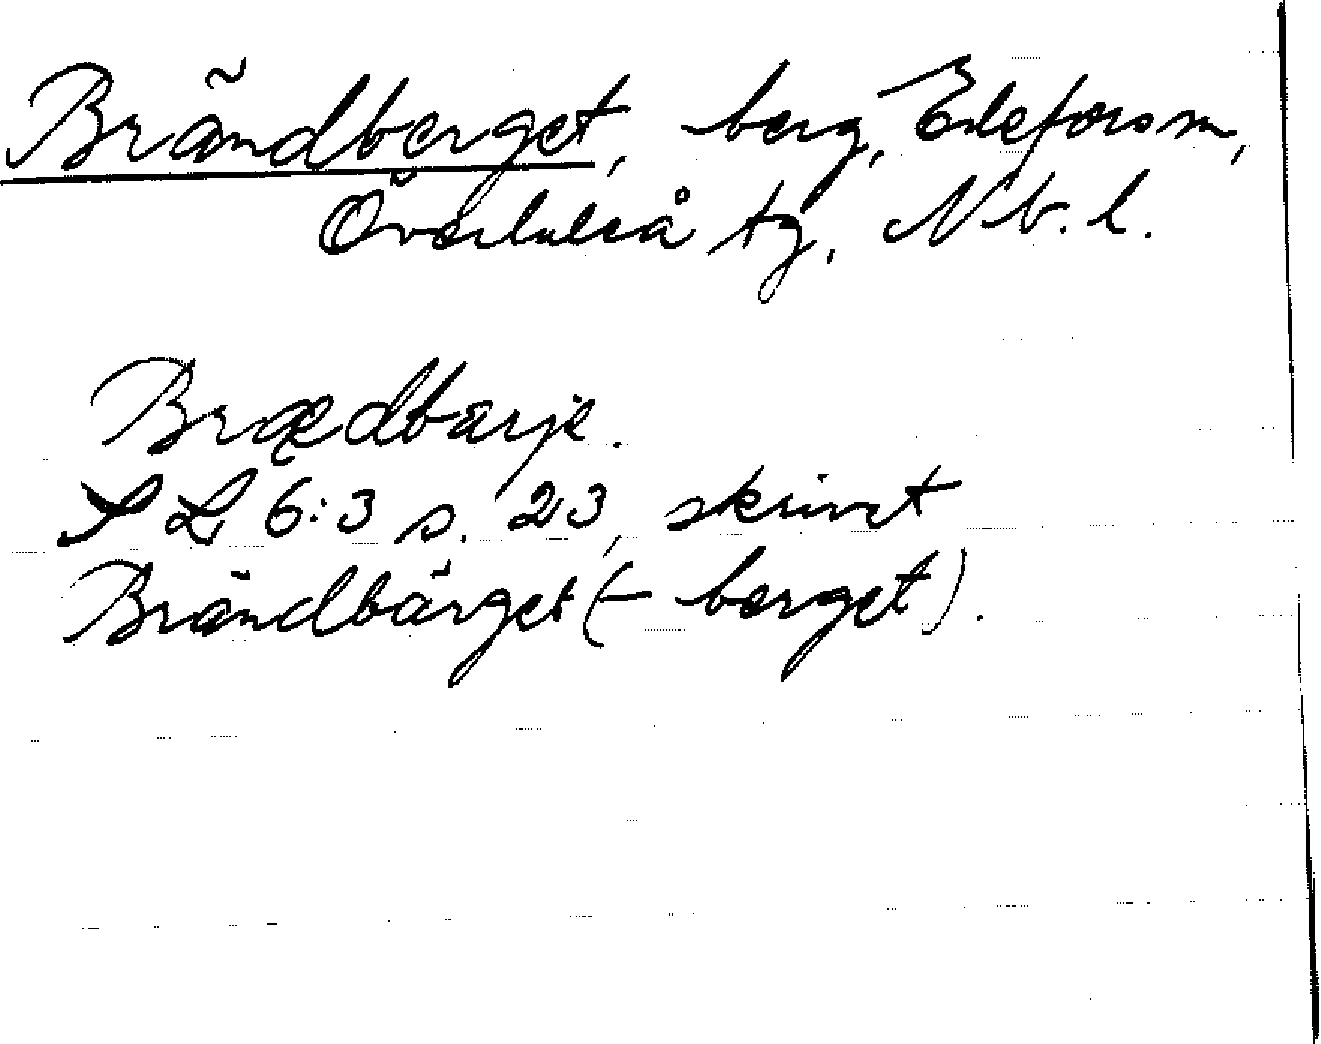 Brändberget, berg, Edefors sn,
Överluleå tg, Nb. l.
Brædbärje.
SL 6:3 s. 23, skrivet
Brändbärget (-berget).